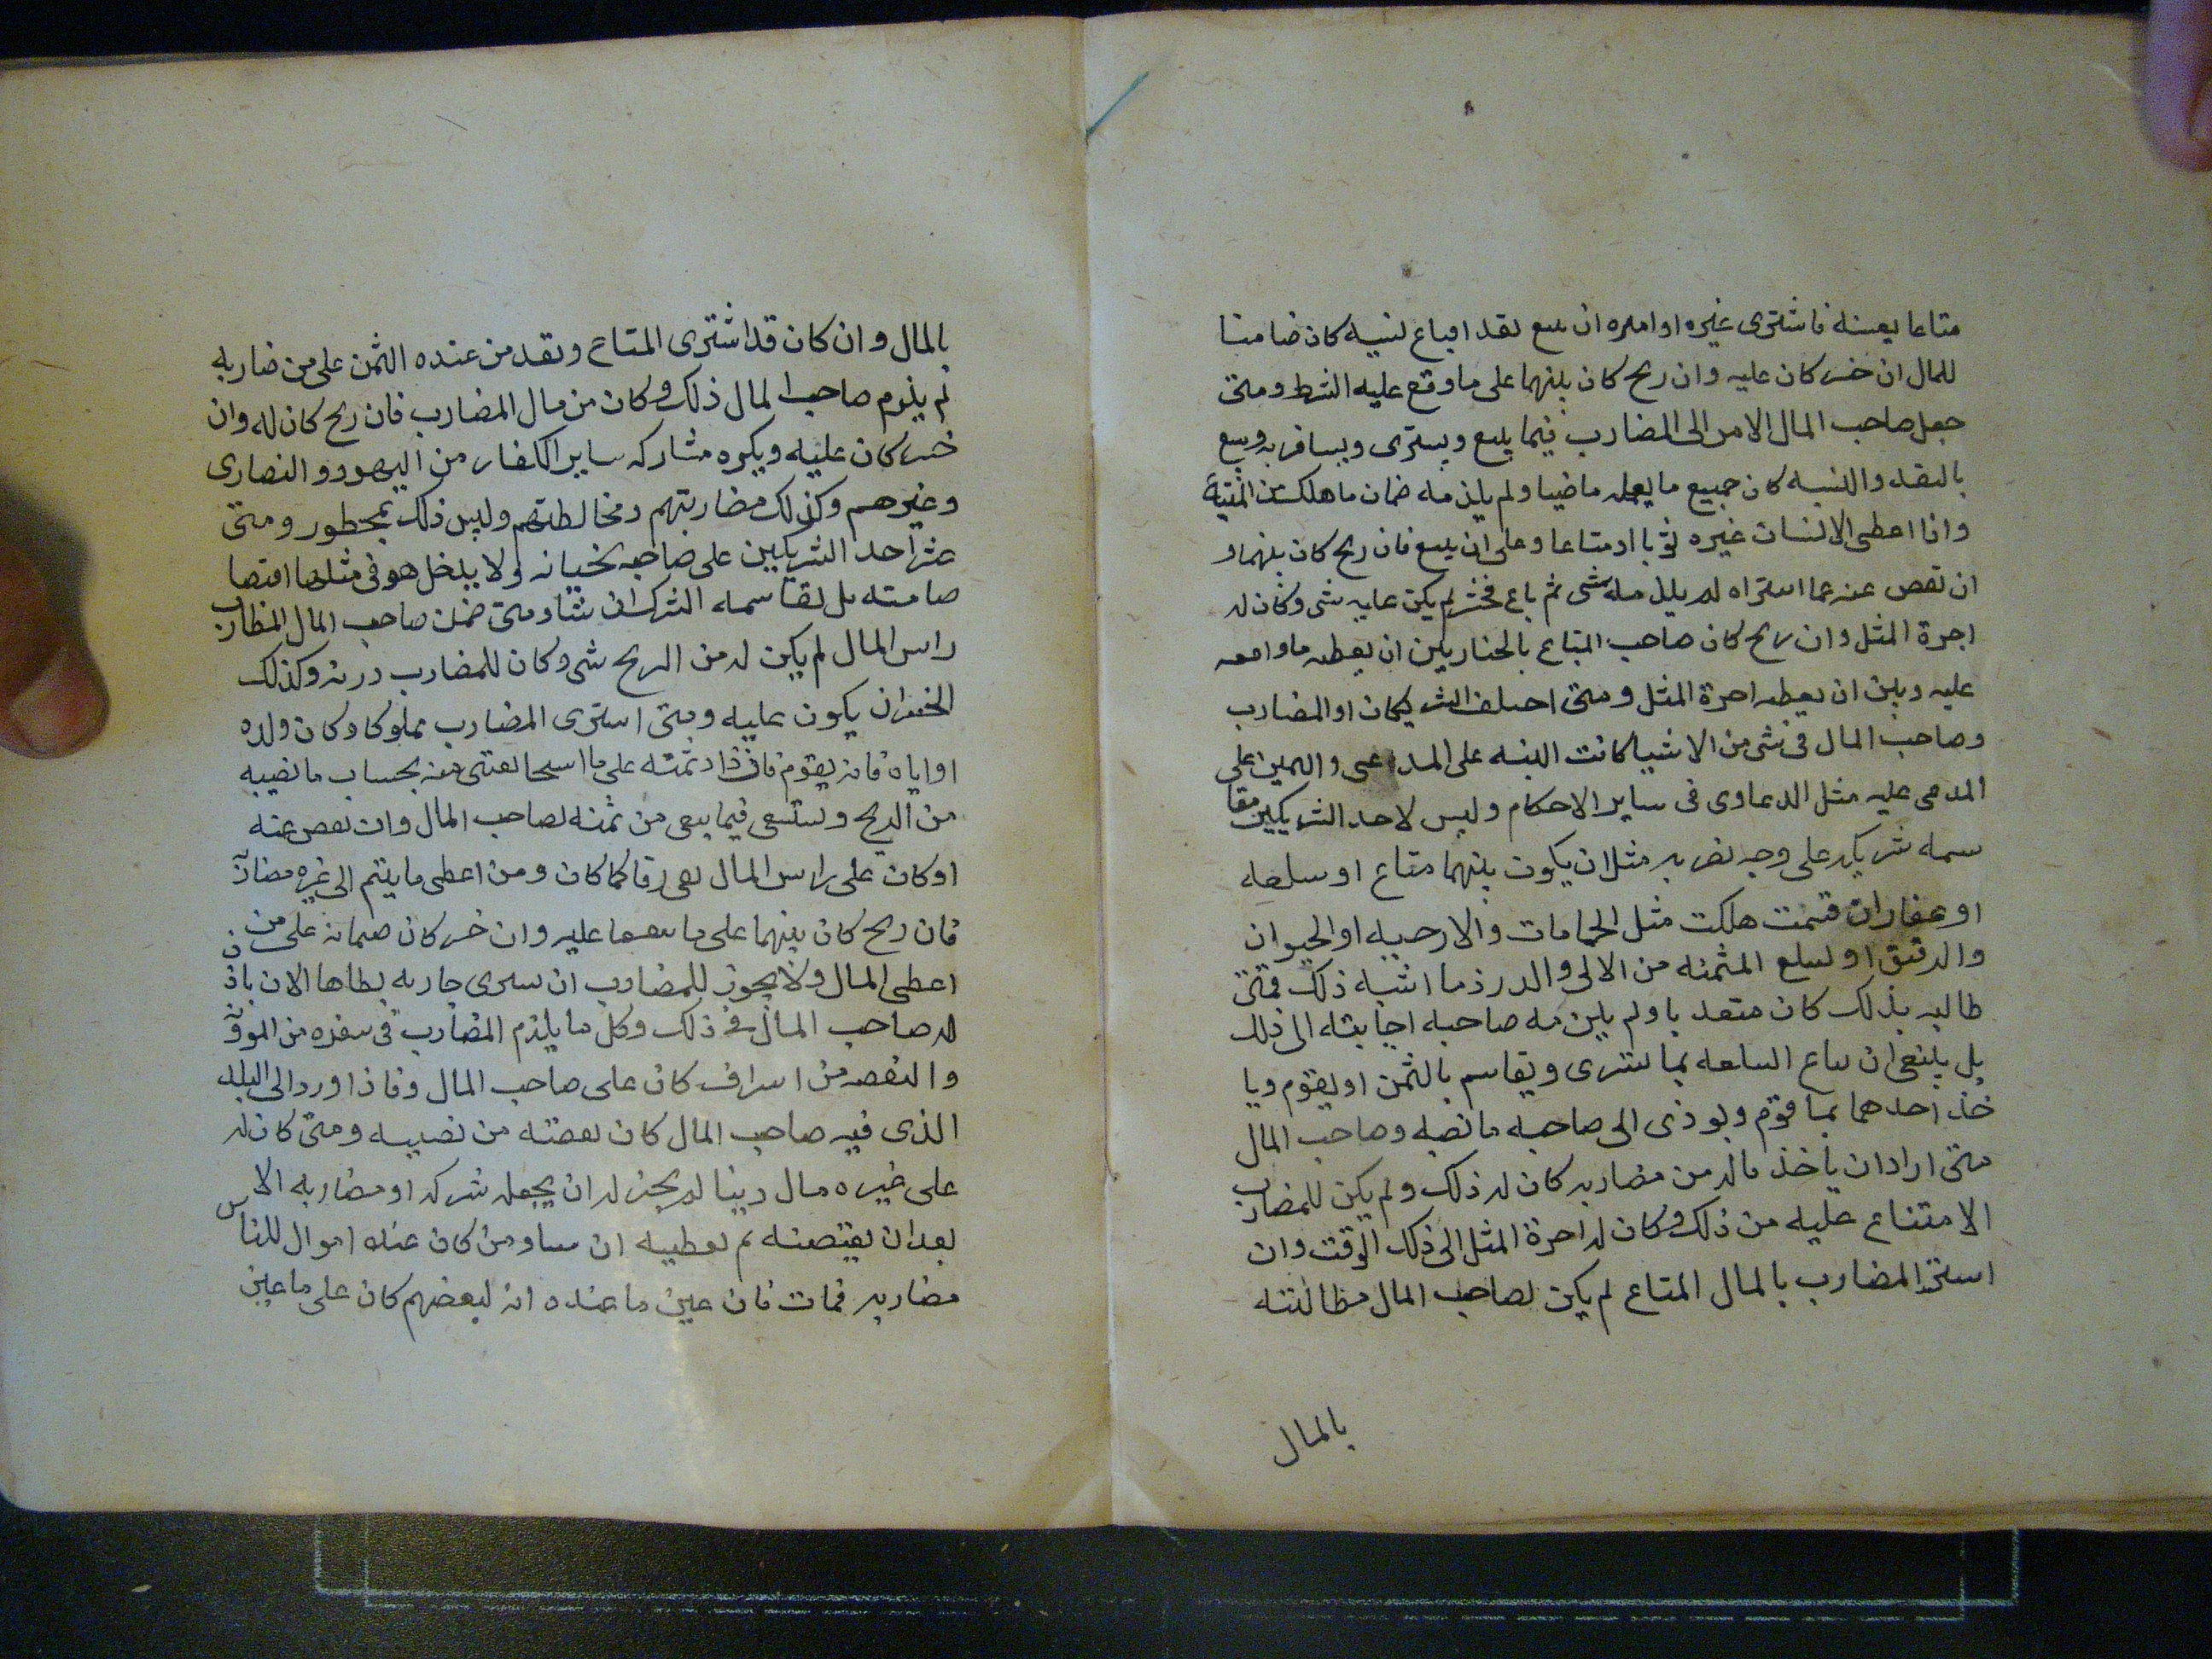 متاعا بعينه فاشترى غيره او امره ان يبيع نقدا فباع نسيه كان ضامنا
للمال ان خسر كان عليه وان ربح كان بينهما على ما وقع عليه الشرط ومتى
جعل صاحب المال الامر الى المضارب فيما يبيع ويشترى ويسافر به ويبيع
بالنقد والنسيه كان جميع ما يعمله ماضيا ولم يلزمه ضمان ما هلك من المتاع
واذا اعطى الانسان غيره ثوبا او متاعا وعلى ان يبيع فان ربح كان بينهما و
ان نقص عنه عما اشتراه لم يلزمه شى ثم باع فخسر لم يكن عليه شى وكان له
اجرة المثل وان ربح كان صاحب المتاع بالخيار بين ان يعطيه ما وافقه
عليه وبين ان يعطيه اجرة المثل ومتى اختلف الشريكان او المضارب
وصاحب المال فى شى من الاشيا كانت البينه على المدعى واليمين على
المدعى عليه مثل الدعاوى فى ساير الاحكام وليس لاحد الشريكين مقا
سمه شريكه على وجه يضر به مثل ان يكون بينهما متاع او سلعه
او عقار ان قسمت هلكت مثل الحمامات والارحيه او الحيوان
والرقيق او لسلع المثمنه من الالى والدر وما اشبه ذلك فمتى
طالبه بذلك كان متعديا ولم يلزمه صاحبه اجابته الى ذلك
بل ينبغى ان يباع السلعه بما تشرى ويقاسم بالثمن او يقوم ويا
خذ احدهما بما قوم ويوذى الى صاحبه ما نصبه وصاحب المال
متى اراد ان ياخذ ماله من مضاربه كان له ذلك ولم يكن للمضارب
الامتناع عليه من ذلك وكان له اجرة المثل الى ذلك الوقت وان
اشترى المضارب بالمال المتاع لم يكن لصاحب المال مطالبته
بالمال
بالمال وان كان قد اشترى المتاع ونقد من عنده الثمن على من ضاربه
لم يلزم صاحب المال ذلك وكان من مال المضارب فان ربح كان له وان
خسر كان عليه ويكره مشاركه ساير الكفار من اليهود والنصارى
وغيرهم وكذلك مضاربتهم ومخالطتهم وليس ذلك بمحظور ومتى
عثر احد الشريكين على صاحبه بخيانه ولا يدخل هو فى مثلها اقتصا
صا منه بل يقاسمه الشركه ان شا ومتى ضمن صاحب المال المضارب
راس المال لم يكن له من الربح شى وكان للمضارب دونه وكذلك
الخسران يكون عليه ومتى اشترى المضارب مملوكا وكان ولده
او اياه فانه يقوم فان زاد ثمنه على ما اشتراه انعتق منه بحساب ما نصيبه
من الربح ويستسعى فيما يبقى من ثمنه لصاحب المال وان نقص عنه
او كان على راس المال بقى رقا كما كان ومن اعطى مال يتيم الى غيره مضاربه
فان ربح كان بينهما على ما يتفقا عليه وان خسر كان ضمانه على من
اعطى المال ولا يجوز للمضارب ان يشترى جاريه يطاها الا ان ياذن
له صاحب المال فى ذلك وكل ما يلزم المضارب فى سفره من الموونة
والنفقه من اسراف كان على صاحب المال وفاذا ورد الى البلد
الذى فيه صاحب المال كان نفقته من نصيبه ومتى كان له
على غيره مال دينا لم يجز له ان يجعله شركه او مضاربه الا
بعد ان يقبضه ثم يعطيه ان شا ومن كان عنده اموال للناس
مضاربه فمات فان عين ما عنده انه لبعضهم كان على ما عين